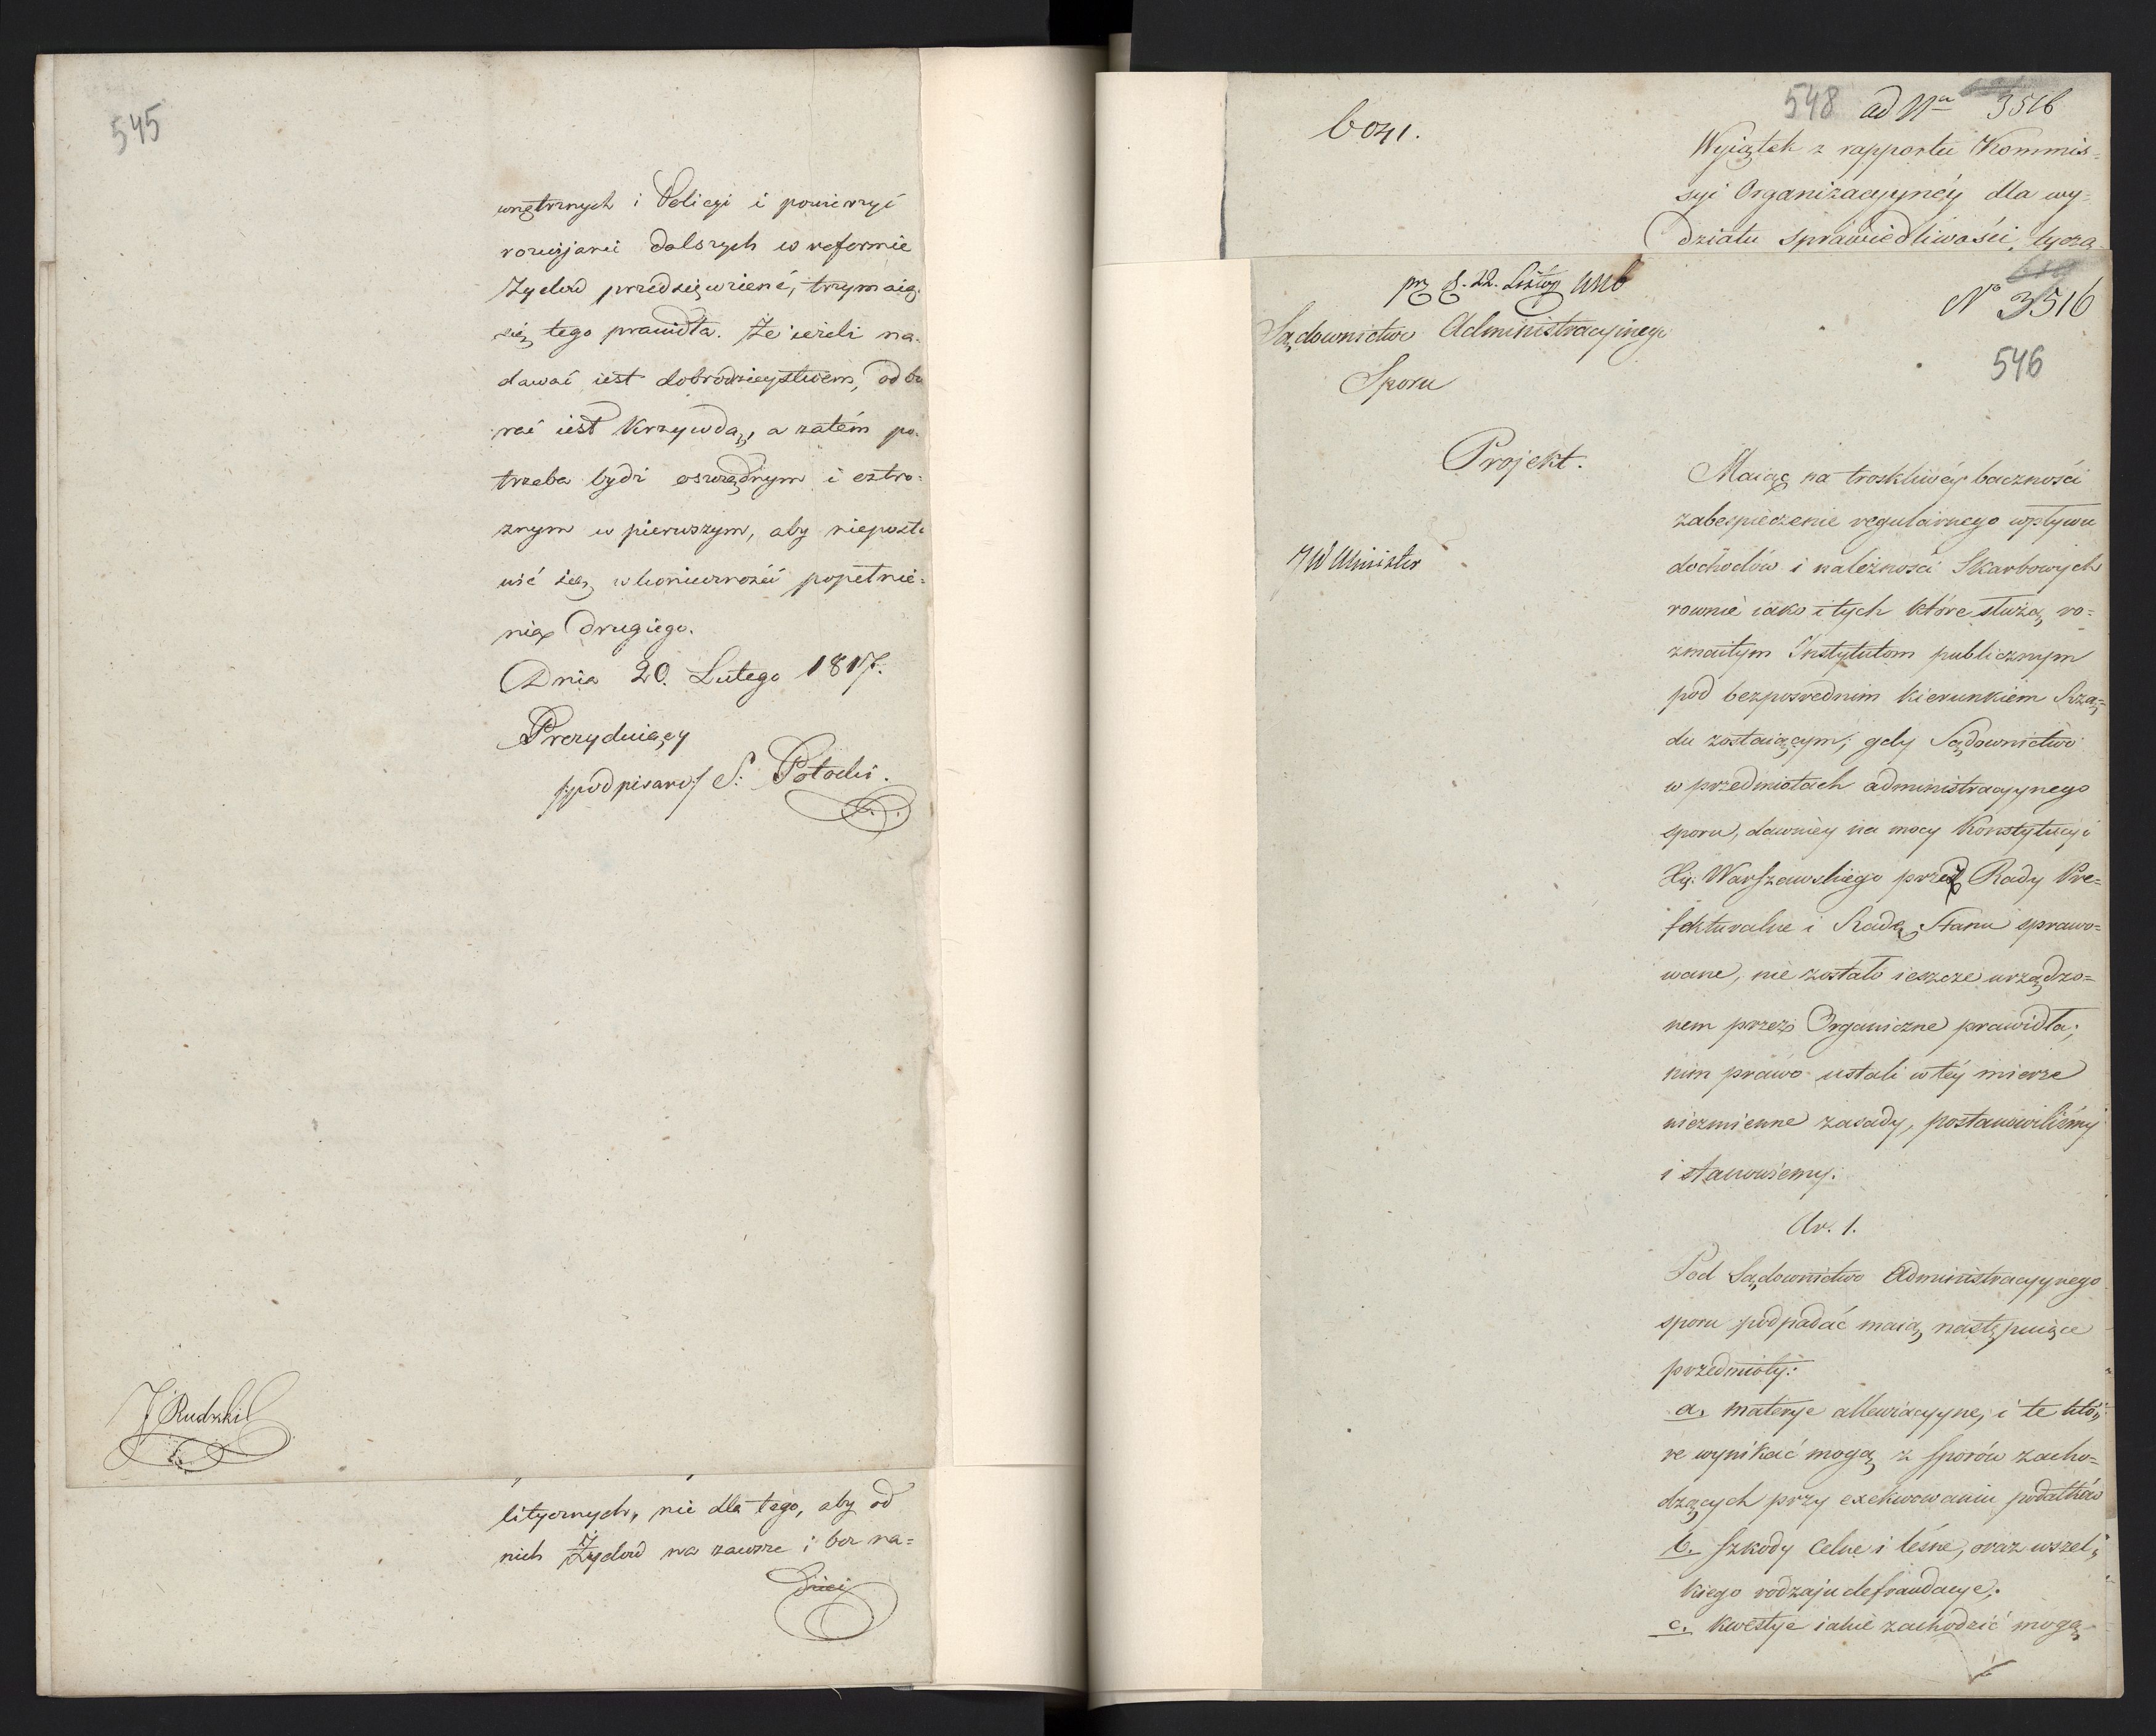 545
wnętrznych i Policyi i powierzyć
rozwijanie dalszych w reformie
Żydów przedsięwzięć, trzymaiąc
się tego prawidła. Że ieżeli na-
dawać iest dobrodzieystwem, odbie
rać iest krzywdą, a zatém po-
trzeba bydź oszczędnym i ostro-
żnym w pierwszym, aby nieposta
wić się w konieczności popełnie-
nia drugiego.
Dnia 20. Lutego 1817.
Prezyduiący
/:podpisano:/ S: Potocki.
J Rudzki
litycznych, nie dla tego, aby od
nich Żydów na zawsze i bez na=
dziei
6041.
548 ad Nrum 3516
Wyiątek z rapportu Kommis=
syi Organizacyynéy dla wy=
działu Sprawiedliwości, tycza
pr. d. 22. Listop 1816
Nº 3516
546
Sądownictwo Administracyinego
Sporu
Projekt.
JW Minister
Maiąc na troskliwéy baczności
zabezpieczenie regularnego wpływu
dochodów i należności Skarbowych
rownie iako i tych które służą ro=
zmaitym Instytutom publicznym
pod bezposrednim kierunkiem Rzą=
du zostaiącym; gdy Sądownictwo
w przedmiotach administracyynego
sporu, dawniey na mocy Konstytucyi
Xię: Warszawskiego przez Rady Pre=
fekturalne i Radę Stanu sprawo=
wane, nie zostało ieszcze urządzo=
nem przez Organiczne prawidła;
nim prawo ustali w téy mierze
niezmienne zasady, postanowiliśmy
i stanowiemy:
Ar. 1.
Pod Sądownictwo Administracyynego
sporu podpadać maią następuiące
przedmioty:
a. materye allewiacyyne, i te któ=
re wynikać mogą z sporów zacho=
dzących przy exekwowaniu podatków
b. szkody celne i leśne, oraz wszel=
kiego rodzaju defraudacye;
c. kwestye iakie zachodzić mogą